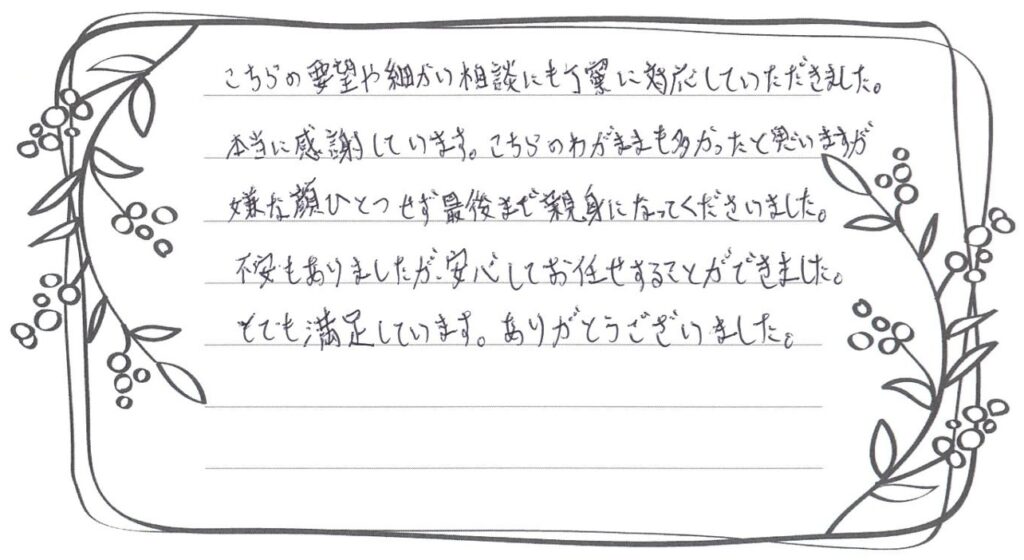 こちらの要望や細かい相談にも丁寧に対応していただきました。
本当に感謝しています。こちらのわがままも多かったと思いますが
嫌な顔ひとつせず最後まで親身になってくださいました。
不安もありましたが、安心してお任せすることができました。
とても満足しています。ありがとうございました。